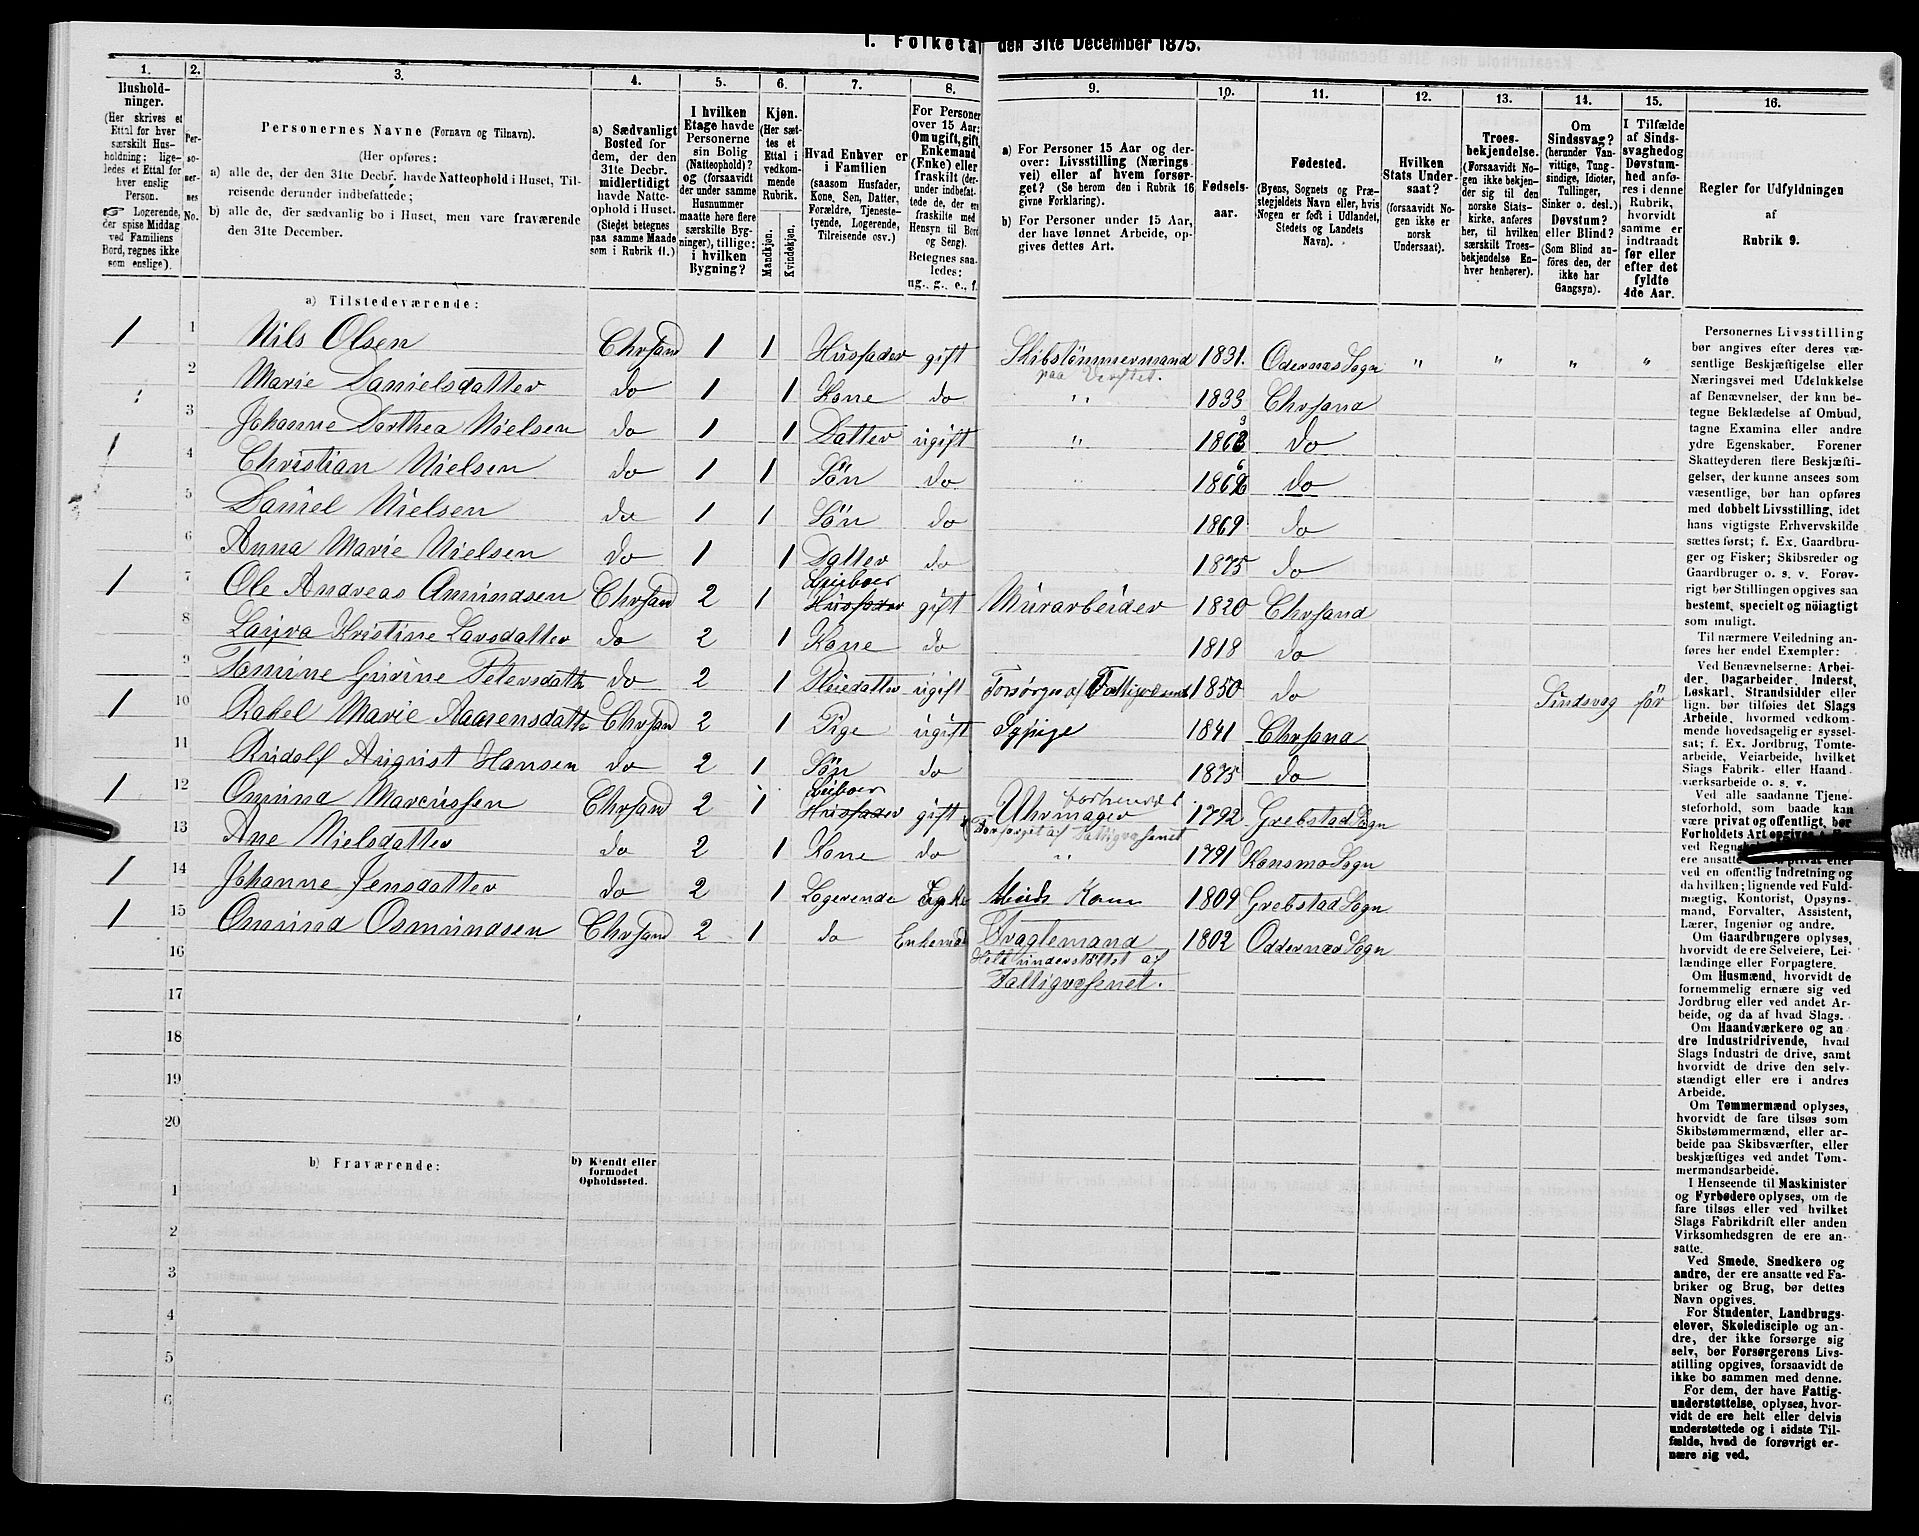 I. Folketal den 31te December 1875.
1. 2. 3. 4. 5. 6. 7. 8. 9. 10. 11. 12. 13. 14. 15. 16.
Hushold-
ninger.
(Her skrives et
Ettal for hver
særskilt Hus-
holdning; lige-
ledes et Ettal for
hver enslig
Person.
☞ Logerende,
der spise Middag
ved Familiens
Bord, regnes ikke
som enslige).
Per-
so-
ner-
nes
No.
Personernes Navne (Fornavn og Tilnavn).
(Her opføres:
a) alle de, der den 31te Decbr. havde Natteophold i Huset, Til-
reisende derunder indbefattede;
b) alle de, der sædvanlig bo i Huset, men vare fraværende
den 31te December.
a) Sædvanligt
Bosted for
dem, der den
31te Decbr.
midlertidigt
havde Natte-
ophold i Huset.
(Stedet betegnes
paa samme Maade
som i Rubrik 11.)
I hvilken
Etage havde
Personerne
sin Bolig
(Natteophold)?
og (forsaavidt
der under samme
Husnummer
maatte høre flere
særskilte Byg-
ninger), tillige:
i hvilken
Bygning?
Kjøn.
(Her sæt-
tes et
Ettal i
vedkom-
mende
Rubrik.
Mandkjøn.
Kvindekjøn.
Hvad Enhver er
i Familien
(saasom Husfader,
Kone, Søn, Datter,
Forældre, Tjeneste-
tyende, Logerende,
Tilreisende osv.)
For Personer
over 15 Aar:
Om ugift, gift,
Enkemand
(Enke) eller
fraskilt (der-
under indbefat-
tede de, der ere
fraskilte med
Hensyn til Bord
og Seng).
Betegnes saa-
ledes:
ug., g., e., f.
a) For Personer 15 Aar og der-
over: Livsstilling (Nærings
vei) eller af hvem forsør-
get? (Se herom den i Rubrik 16
givne Forklaring).
b) For Personer under 15 Aar,
der have lønnet Arbeide, op-
gives dettes Art.
Fødsels-
aar.
Fødested.
(Byens, Sognets og Præ-
stegjeldets Navn eller, hvis
Nogen er født i Udlandet,
Stedets og Landets
Navn).
Hvilken
Stats Under-
saat?
(forsaavidt No-
gen ikke er
norsk
Undersaat).
Troes-
bekjendelse.
(Forsaavidt No-
gen ikke bekjen-
der sig til den
norske Stats-
kirke, anføres
her, til hvilken
særskilt Troes-
bekjendelse En-
hver henhører).
Om
Sindssvag?
(herunder Van-
vittige, Tung-
sindige, Idioter,
Tullinger,
Sinker o. desl.)
Døvstum?
eller Blind?
(Som Blind an-
føres den, der
ikke har
Gangsyn).
I Tilfælde
af Sinds-
svaghed og
Døvstum-
hed anfø-
res i denne
Rubrik,
hvorvidt
samme er
indtraadt
før eller
efter det
fyldte
4de Aar.
Regler for Udfyldningen
af
Rubrik 9.
a) Tilstedeværende:
1 1 Nils Olsen Chrsand 1 1 Husfader gift Skibstømmermand 1831. Odernæs Sogn " " " "
paa Verftet.
2 Marie Danielsdatter do 1 1 Kone do " 1833 Chrsand
3 Johanne Dorthea Nielsen do 1 1 Datter ugift " 1863 do
1 4 Christian Nielsen do 1 1 Søn do " 1866 do
5 Daniel Nielsen do 1 1 Søn do 1869 do
6 Anna Marie Nielsen do 1 1 Datter do 1875 do
1 7 Ole Andreas Amundsen Chrsand 2 1 Leieboer Husfader gift Murarbeider 1820 Chrsand
8 Laura Kristine Larsdatter do 2 1 Kone do 1818 do
9 Tomine Gurine Petersdatt do 2 1 Pleiedatter ugift Forsørges af Fattigvæsnet 1850 do Sindsvag før
1 10 Rakel Marie Aanensdatt Chrsand 2 1 Pige ugift Sypige 1841 Chrsand
11 Rudolf August Hansen do 2 1 Søn do 1875 do
1 12 Omund Marcussen Chrsand 2 1 Leieboer Husfader gift Uhrmager forhenværd 1792 Grebstad Sogn
Forsørget af Fattigvæsenet
13 Ane Nielsdatter do 2 1 Kone do " 1791 Konsmo Sogn
1 14 Johanne Jensdatter do 2 1 Logerende Enke Kone 1809 Grebstad Sogn
1 15 Omund Osmundsen Chrsand 2 1 do Enkemd Vragtemand 1802 Oddernæs Sogn
Helt understøttet af
Fattigvæsenet.
16
17
18
19
20
b) Fraværende:
b) Kjendt eller
formodet
Opholdssted.
1
2
3
4
5
6
Personernes Livsstilling
bør angives efter deres væ-
sentlige Beskjæftigelse eller
Næringsvei med Udelukkelse
af Benævnelser, der kun be-
tegne Beklædelse af Ombud,
tagne Examina eller andre
ydre Egenskaber. Forener
Skatteyderen flere Beskjæfti-
gelser, der kunne ansees som
væsentlige, bør han opføres
med dobbelt Livsstilling, idet
hans vigtigste Erhvervskilde
sættes først; f. Ex. Gaardbru-
ger og Fisker; Skibsreder og
Gaardbruger o. s. v. Forøv-
rigt bør Stillingen opgives saa
bestemt, specielt og nöiagtigt
som muligt.
Til nærmere Veiledning an-
føres her endel Exempler:
Ved Benævnelserne: Arbei-
der, Dagarbeider, Inderst,
Løskarl, Strandsidder eller
lign. bør tilføies det Slags
Arbeide, hvormed vedkom-
mende hovedsagelig er syssel-
sat; f. Ex. Jordbrug, Tomte-
arbeide, Veiarbeide, hvilket
Slags Fabrik- eller Haand
værksarbeide o. s. v.
Ved alle saadanne Tjene-
steforhold, som baade kan
være privat og offentligt, bør
Forholdets Art opgives,
ved
ere ansatte i den privat eller
ved en offentlig Indretning og
da hvilken; lignende ved Fuld-
mægtig, Kontorist, Opsyns-
mand, Forvalter, Assistent,
Lærer, Ingeniør og andre.
Om Gaardbrugere oplyses,
hvorvidt de ere Selveiere, Lei-
lændinge eller Forpagtere.
Om Husmænd, hvorvidt de
fornemmelig ernære sig ved
Jordbrug eller ved andet Ar-
beide, og da af hvad Slags.
Om Haandværkere og an
dre Industridrivende, hvad
Slags Industri de drive, samt
hvorvidt de drive den selv-
stændigt eller ere i andres
Arbeide.
Om Tømmermænd oplyses,
hvorvidt de fare tilsøs som
Skibstømmermænd, eller ar-
beide paa Skibsværfter, eller
beskjæftiges ved andet Tøm-
mermandsarbeide.
I Henseende til Maskinister
og Fyrbødere oplyses, om de
fare tilsøs eller ved hvilket
Slags Fabrikdrift eller anden
Virksomhedsgren de ere an-
satte.
Ved Smede, Snedkere og
andre, der ere ansatte ved Fa-
briker og Brug, bør dettes
Navn opgives.
For Studenter, Landbrugs-
elever, Skoledisciple og an-
dre, der ikke forsørge sig
selv, bør Forsørgerens Livs-
stilling opgives, forsaavidt de
ikke bo sammen med denne.
For dem, der have Fattig-
understøttelse, oplyses, hvor-
vidt de ere helt eller delvis
understøttede og i sidste Til-
fælde, hvad de forøvrigt er-
nære sig ved.